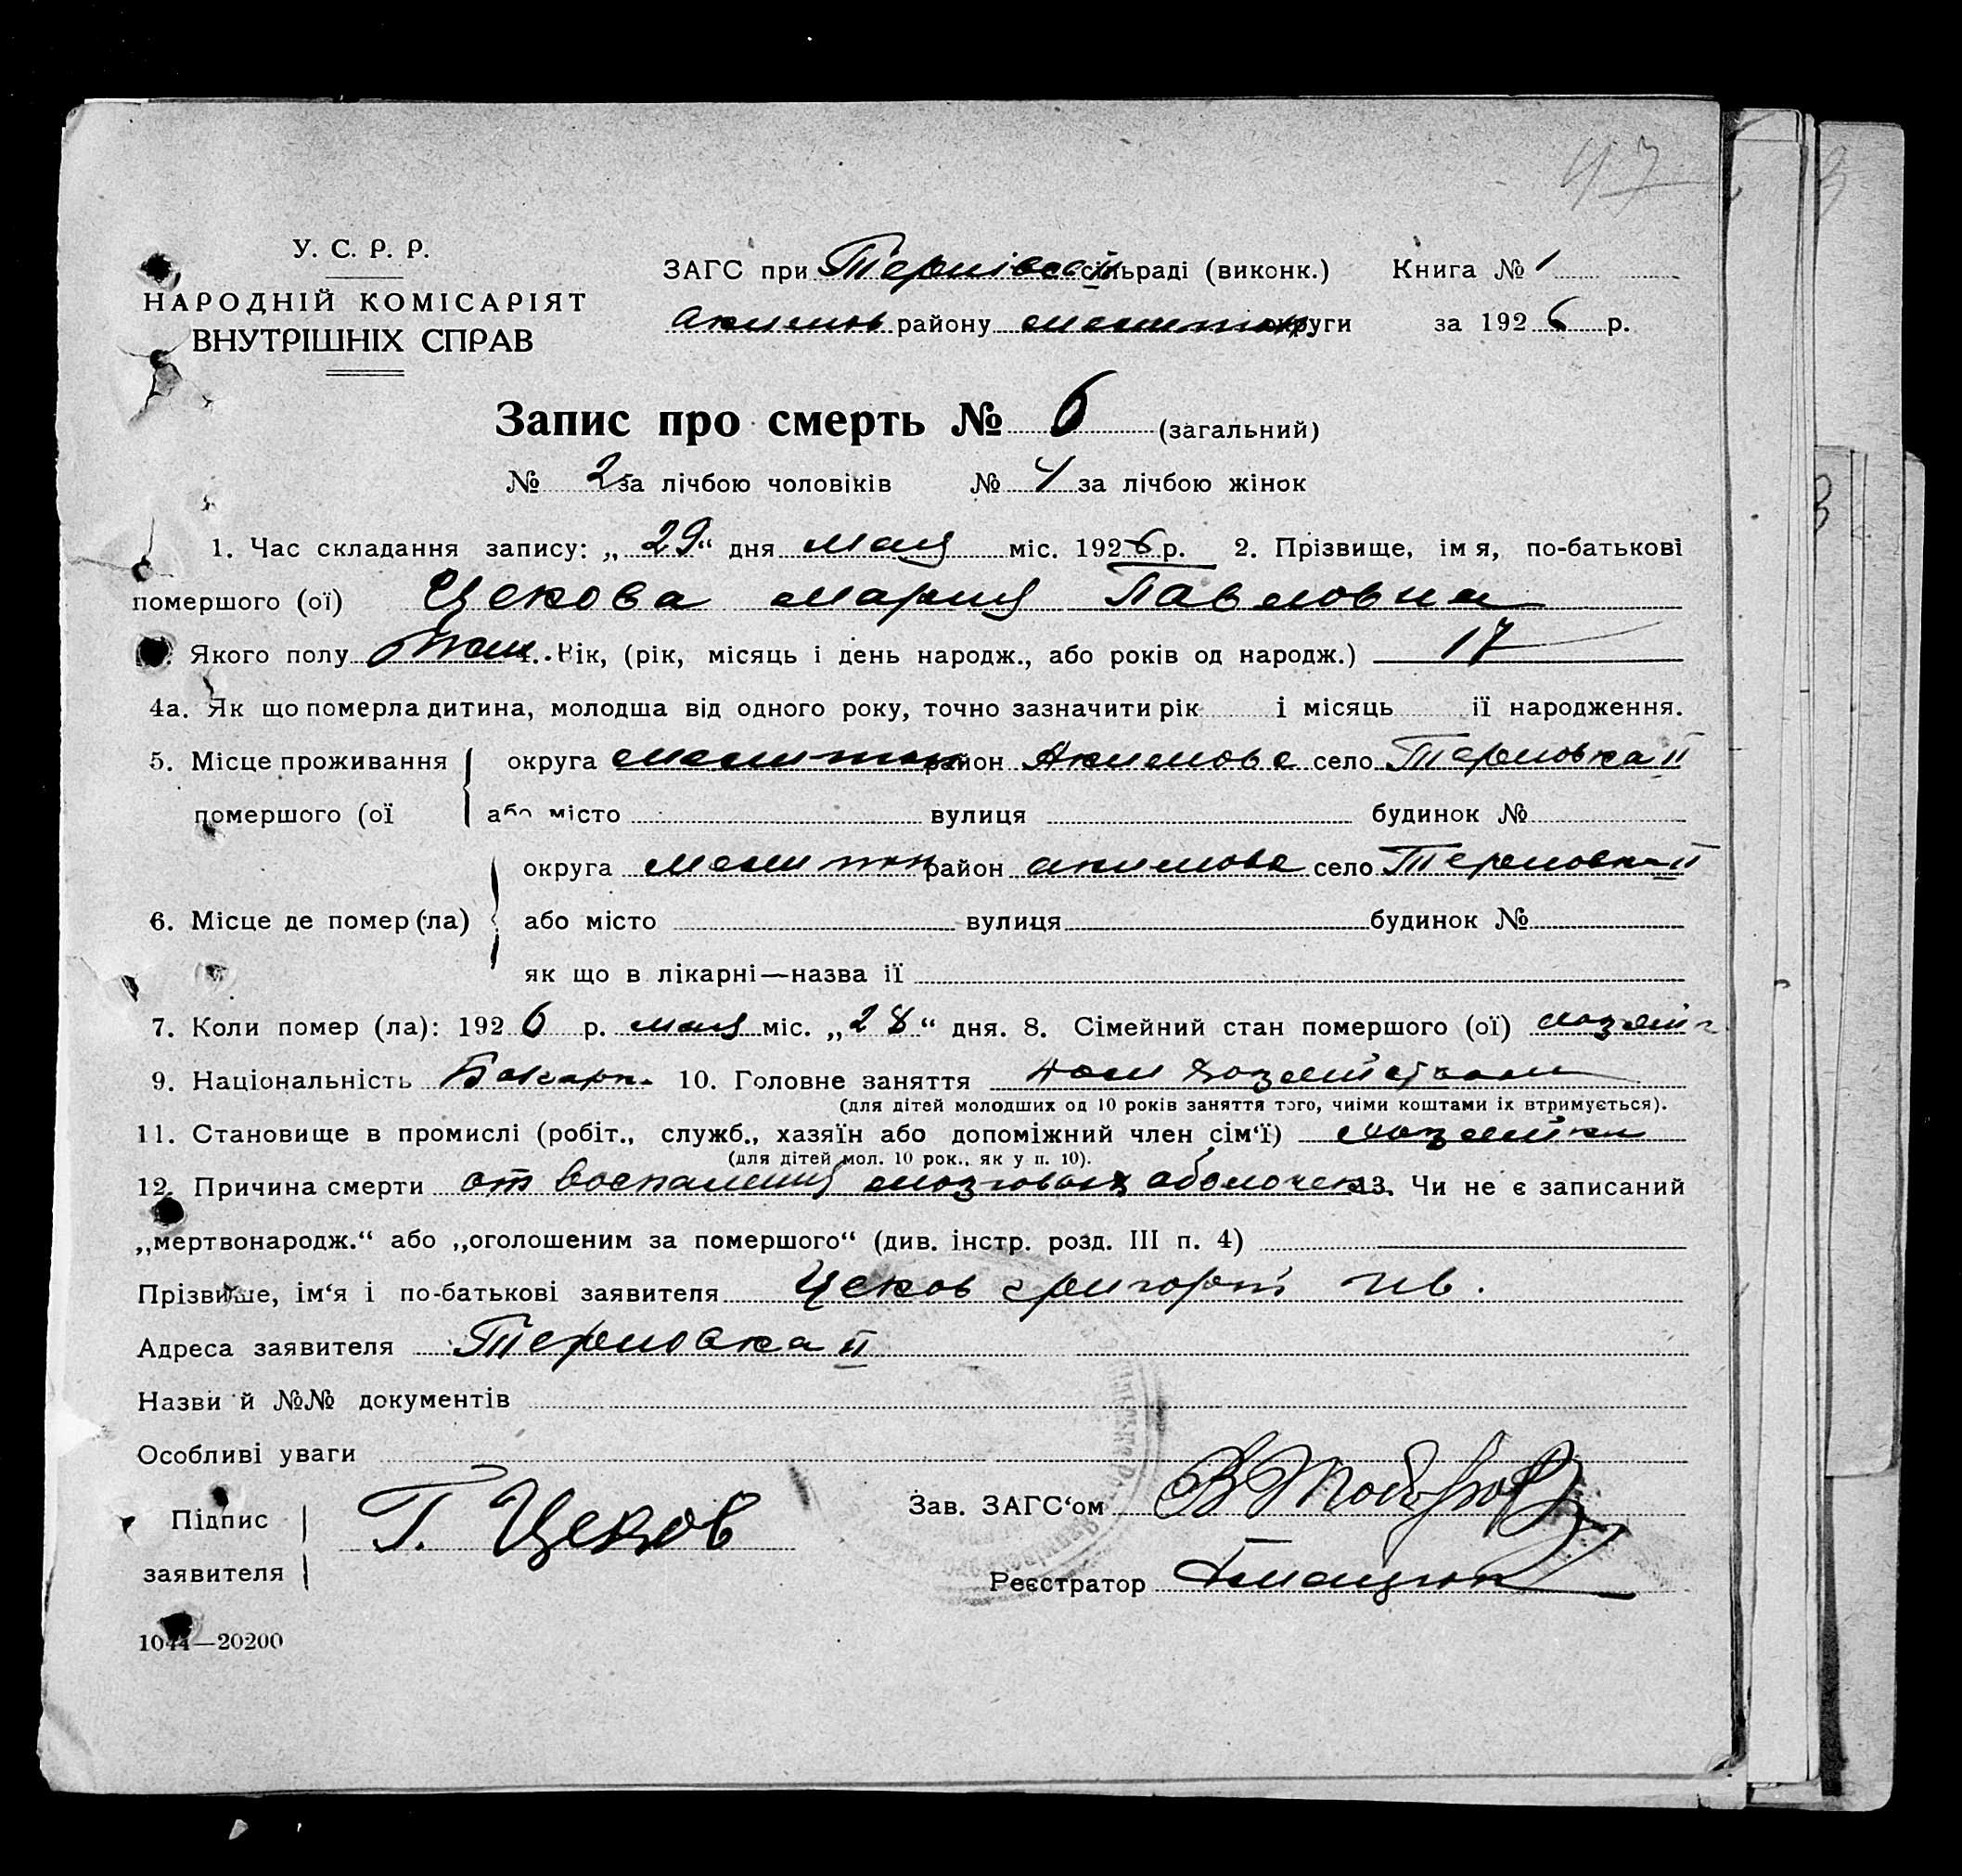 47
У. С. Р. Р.
НАРОДНІЙ КОМІСАРІЯТ
ВНУТРІШНІХ СПРАВ
ЗАГС при Тернівській сільраді (виконк.) Книга № 1
Акимов району Мелітоп округи за 1926 р.
Запис про смерть № 6 (загальний)
№ 2 за лічбою чоловіків № 4 за лічбою жінок
1. Час складання запису: „29“ дня мая міс. 1926 р. 2. Прізвище, імя, по-батькові
помершого (ої) Цекова Мария Павловна
Якого полу жен 4. Вік, (рік, місяць і день народж., або років од народж.) 17
4а. Як що померла дитина, молодша від одного року, точно зазначити рік і місяць ії народження.
5. Місце проживання округа Мелитоп район Акимовс село Терновка II
помершого (ої або місто вулиця будинок №
округа Мелитоп район Акимовс село Терновка II
6. Місце де помер (ла) або місто вулиця будинок №
як що в лікарні—назва ії
7. Коли помер (ла): 1926 р. мая міс. „28“ дня. 8. Сімейний стан помершого (ої)
9. Національність Болгарк. 10. Головне заняття
(для дітей молодших од 10 років заняття того, чиіми коштами іх втримується).
11. Становище в промислі (робіт., служб., хазяїн або допоміжний член сім‘ї) хозяйка
(для дітей мол. 10 рок., як у п. 10).
12. Причина смерти от воспаления мозговых оболочек 13. Чи не є записаний
„мертвонародж.“ або „оголошеним за помершого“ (див. інстр. розд. III п. 4)
Прізвище, ім‘я і по-батькові заявителя Цеков Григорий Ив.
Адреса заявителя Терновка II
Назви й №№ документів
Особливі уваги
Підпис заявителя Г. Цеков
Зав. ЗАГС‘ом
Реєстратор
1044—20200